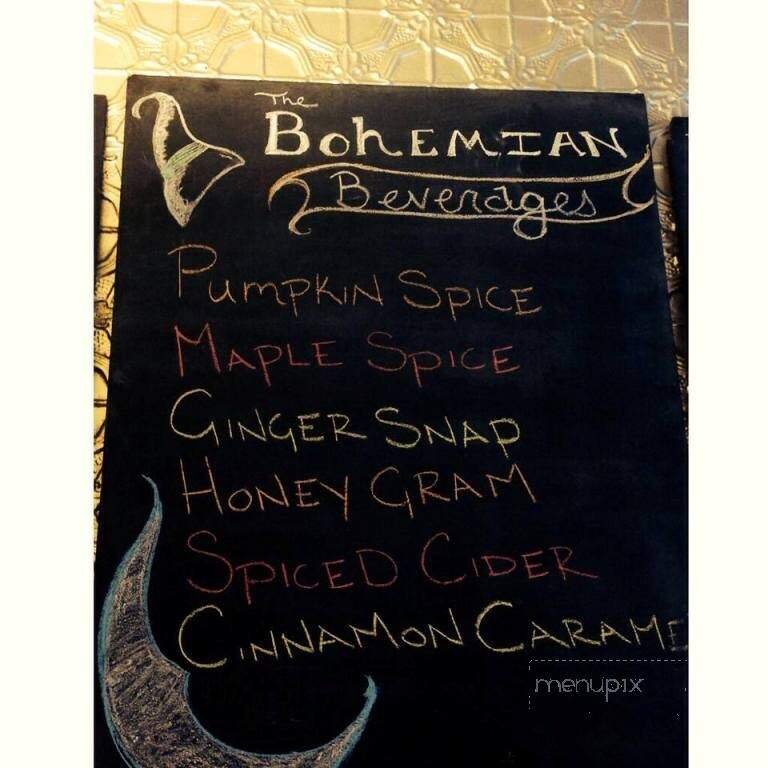 The
BOHEMIAN
Beverages
PUMPKIN SPICE
MAPLE SPICE
GINGER SNAP
HONEY GRAM
SPICED CIDER
CINNAMON CARAME
menupix